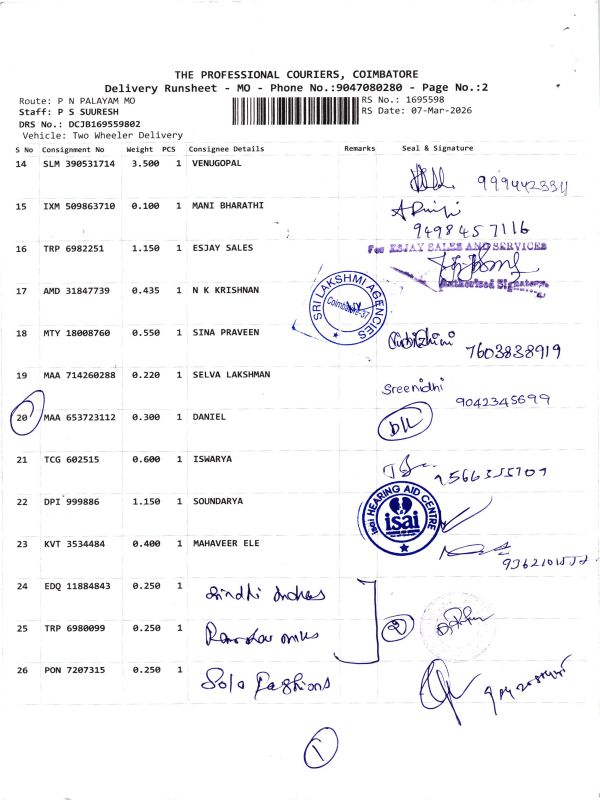 THE PROFESSIONAL COURIERS, COIMBATORE
Delivery Runsheet - MO - Phone No.:9047080280 - Page No.:2
Route: P N PALAYAM MO
RS No.: 1695598
Staff: P S SUURESH
RS Date: 07-Mar-2026
DRS No.: DCJB169559802
Vehicle: Two Wheeler Delivery
S No Consignment No Weight PCS Consignee Details Remarks Seal & Signature
14 SLM 390531714 3.500 1 VENUGOPAL
15 IXM 509863710 0.100 1 MANI BHARATHI
9498457116
16 TRP 6982251 1.150 1 ESJAY SALES
For ESJAY SALES AND SERVICES
Authorised Signatory
17 AMD 31847739 0.435 1 N K KRISHNAN
SRI LAKSHMI AGENCIES
Coimbatore-37
18 MTY 18008760 0.550 1 SINA PRAVEEN
7603838919
19 MAA 714260288 0.220 1 SELVA LAKSHMAN
Sreenidhi
9042345699
20 MAA 653723112 0.300 1 DANIEL
D/L
21 TCG 602515 0.600 1 ISWARYA
22 DPI 999886 1.150 1 SOUNDARYA
isai HEARING AID CENTRE
isai
23 KVT 3534484 0.400 1 MAHAVEER ELE
24 EDQ 11884843 0.250 1
25 TRP 6980099 0.250 1
26 PON 7207315 0.250 1 Sola Fashions
1